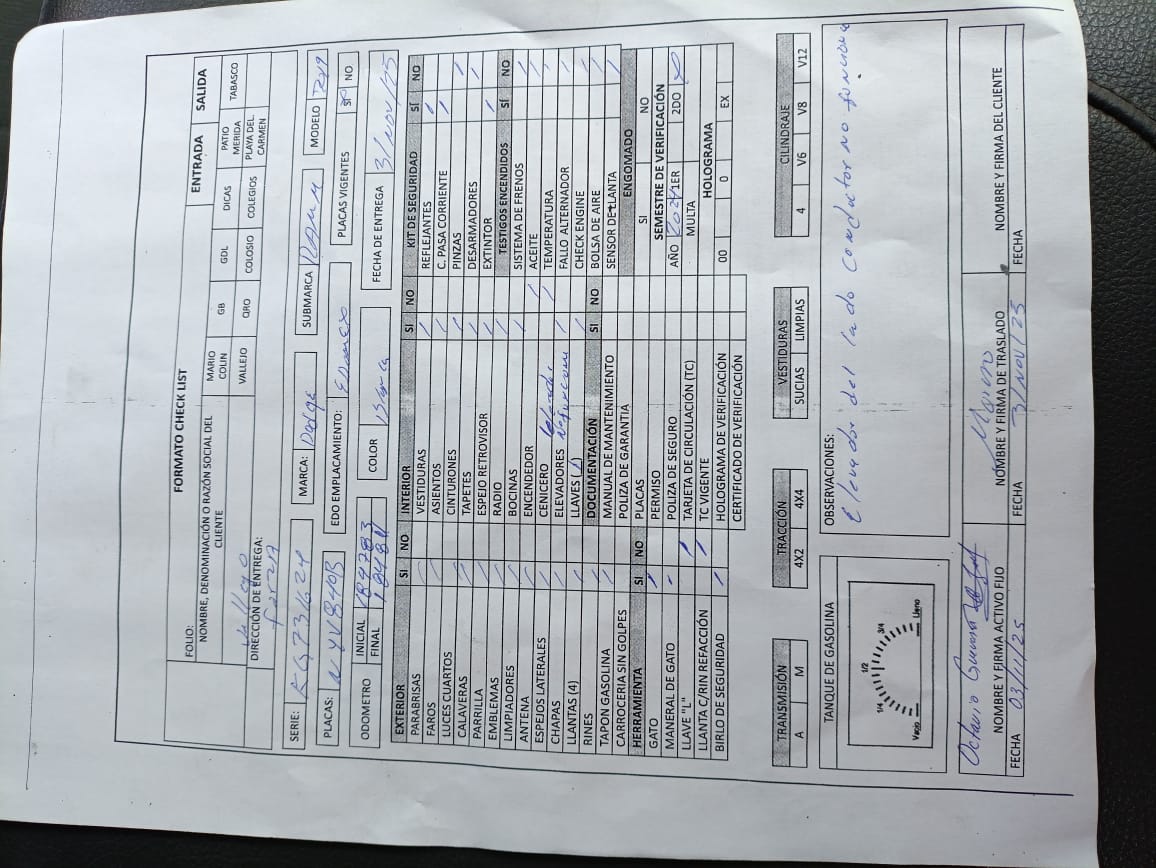 FORMATO CHECK LIST
ENTRADA SALIDA
FOLIO:
NOMBRE, DENOMINACIÓN O RAZÓN SOCIAL DEL CLIENTE
MARIO COLIN GB GDL DICAS PATIO MERIDA TABASCO
VALLEJO QRO COLOSIO COLEGIOS PLAYA DEL CARMEN
DIRECCIÓN DE ENTREGA:
SERIE: MARCA: Dodge SUBMARCA MODELO 2019
PLACAS: EDO EMPLACAMIENTO: PLACAS VIGENTES SÍ NO
ODOMETRO INICIAL COLOR FECHA DE ENTREGA 3/Nov/25
FINAL
EXTERIOR SI NO
PARABRISAS
FAROS
LUCES CUARTOS
CALAVERAS
PARRILLA
EMBLEMAS
LIMPIADORES
ANTENA
ESPEJOS LATERALES
CHAPAS
LLANTAS (4)
RINES
TAPON GASOLINA
CARROCERIA SIN GOLPES
HERRAMIENTA SI NO
GATO
MANERAL DE GATO
LLAVE "L"
LLANTA C/RIN REFACCIÓN
BIRLO DE SEGURIDAD
INTERIOR SI NO
VESTIDURAS
ASIENTOS
CINTURONES
TAPETES
ESPEJO RETROVISOR
RADIO
BOCINAS
ENCENDEDOR
CENICERO
ELEVADORES
LLAVES (1)
DOCUMENTACIÓN SI NO
MANUAL DE MANTENIMIENTO
POLIZA DE GARANTIA
PLACAS
PERMISO
POLIZA DE SEGURO
TARJETA DE CIRCULACIÓN (TC)
TC VIGENTE
HOLOGRAMA DE VERIFICACIÓN
CERTIFICADO DE VERIFICACIÓN
KIT DE SEGURIDAD SÍ NO
REFLEJANTES
C. PASA CORRIENTE
PINZAS
DESARMADORES
EXTINTOR
TESTIGOS ENCENDIDOS SÍ NO
SISTEMA DE FRENOS
ACEITE
TEMPERATURA
FALLO ALTERNADOR
CHECK ENGINE
BOLSA DE AIRE
SENSOR DE LLANTA
ENGOMADO
SI NO
SEMESTRE DE VERIFICACIÓN
AÑO 2024 1ER 2DO
MULTA
HOLOGRAMA
00 0 EX
TRANSMISIÓN TRACCIÓN VESTIDURAS CILINDRAJE
A M 4X2 4X4 SUCIAS LIMPIAS 4 V6 V8 V12
TANQUE DE GASOLINA
Vacio 1/4 1/2 3/4 Lleno
OBSERVACIONES:
Elevador del lado conductor no funciona
Octavio
NOMBRE Y FIRMA ACTIVO FIJO NOMBRE Y FIRMA DE TRASLADO NOMBRE Y FIRMA DEL CLIENTE
FECHA 03/11/25 FECHA 3/Nov/25 FECHA